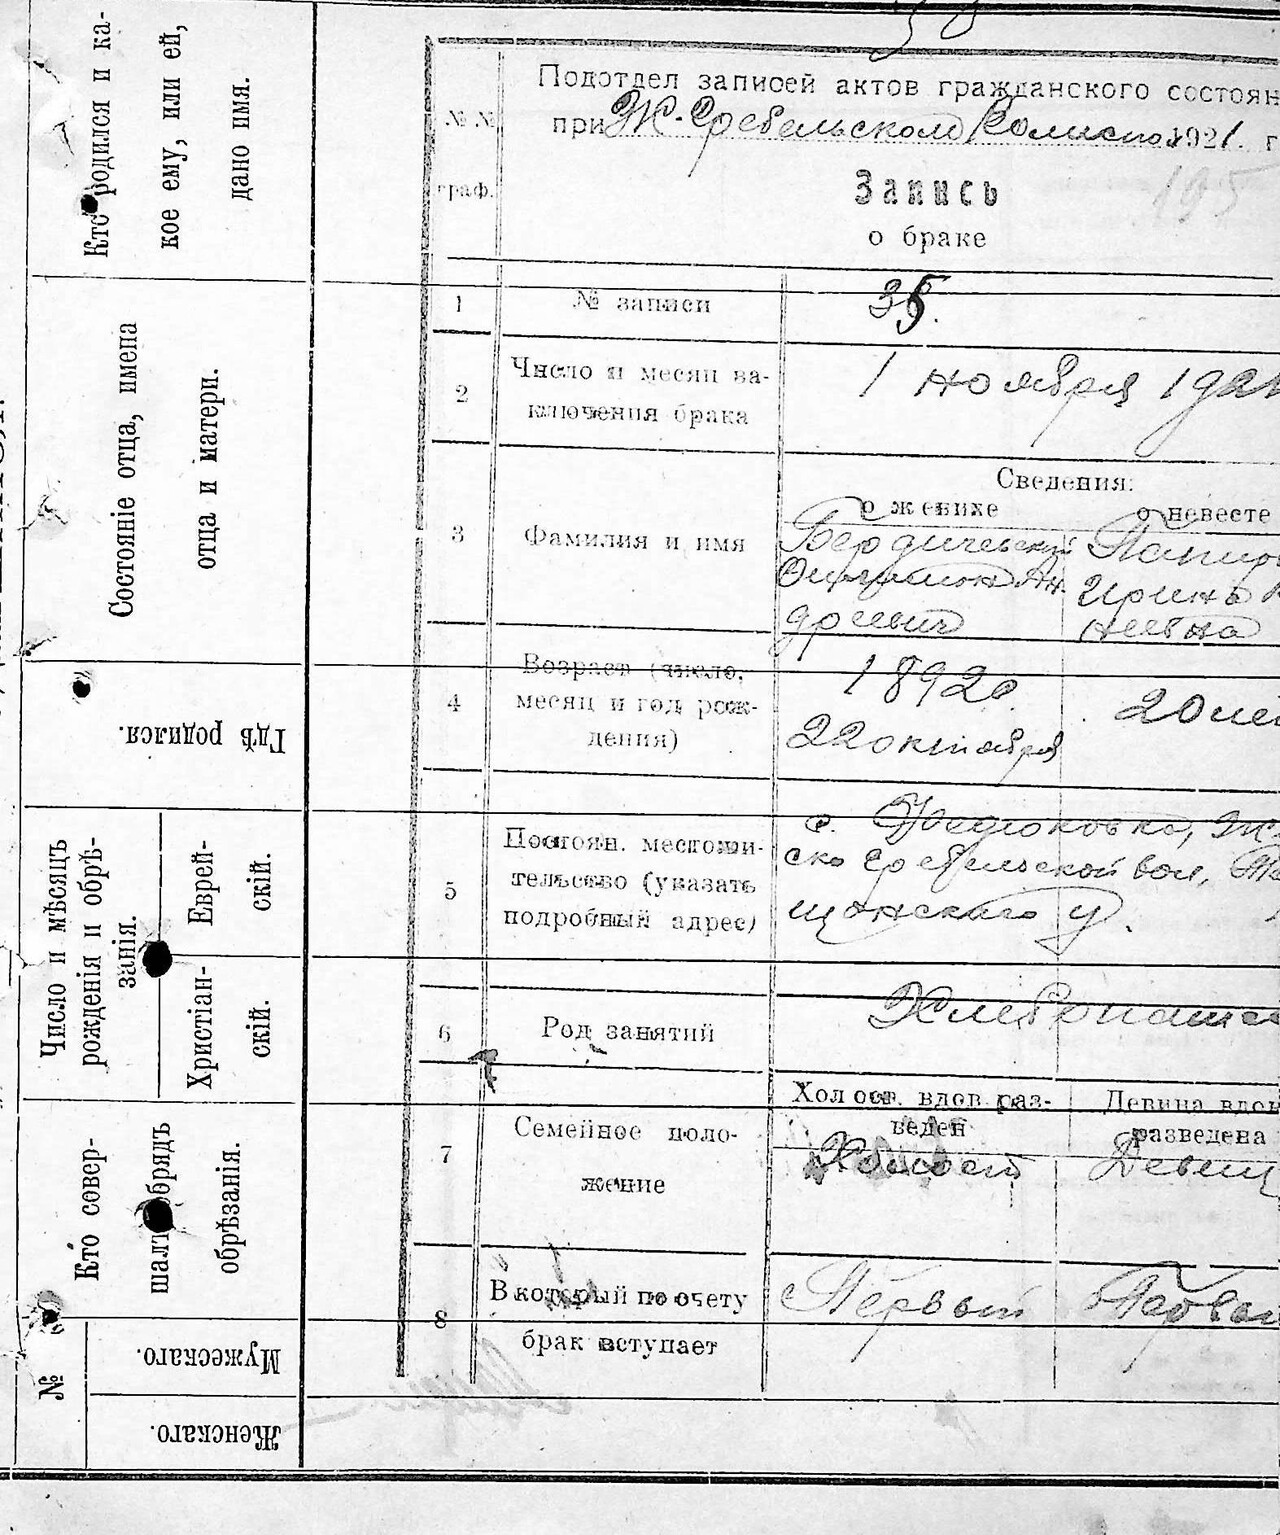 Кто родился и ка-
кое ему, или ей,
дано имя.
Состояніе отца, имена
отца и матери.
Гдѣ родился.
Число и мѣсяцъ
рожденія и обрѣ-
занія.
Еврей-
скій.
Христіан-
скій.
Кто совер-
шалъ обрядъ
обрѣзанія.
№
Мужескаго.
Женскаго.
№ №
граф.
Подотдел записей актов гражданского состоян
при Ж. Гребельском 1921. г
195
Запись
о браке
1
№ записи
35.
2
Число и месяц за-
ключения брака
1 ноября 1921
3
Фамилия и имя
Сведения:
о женихе
о невесте
Бердичевский
Ан-
дреевич
4
Возраст (число,
месяц и год рож-
дения)
1892 г.
22 октября
20 лет
5
Постоян. местожи-
тельство (указать
подробный адрес)
с.
ско Гребельской вол.,
щанского у.
6
Род занятий
Хлебопаше
7
Семейное поло-
жение
Холост. вдов. раз-
веден
Девица вдов
разведена
Холост
Девиц
8
В который по счету
брак вступает
Первый
Первый